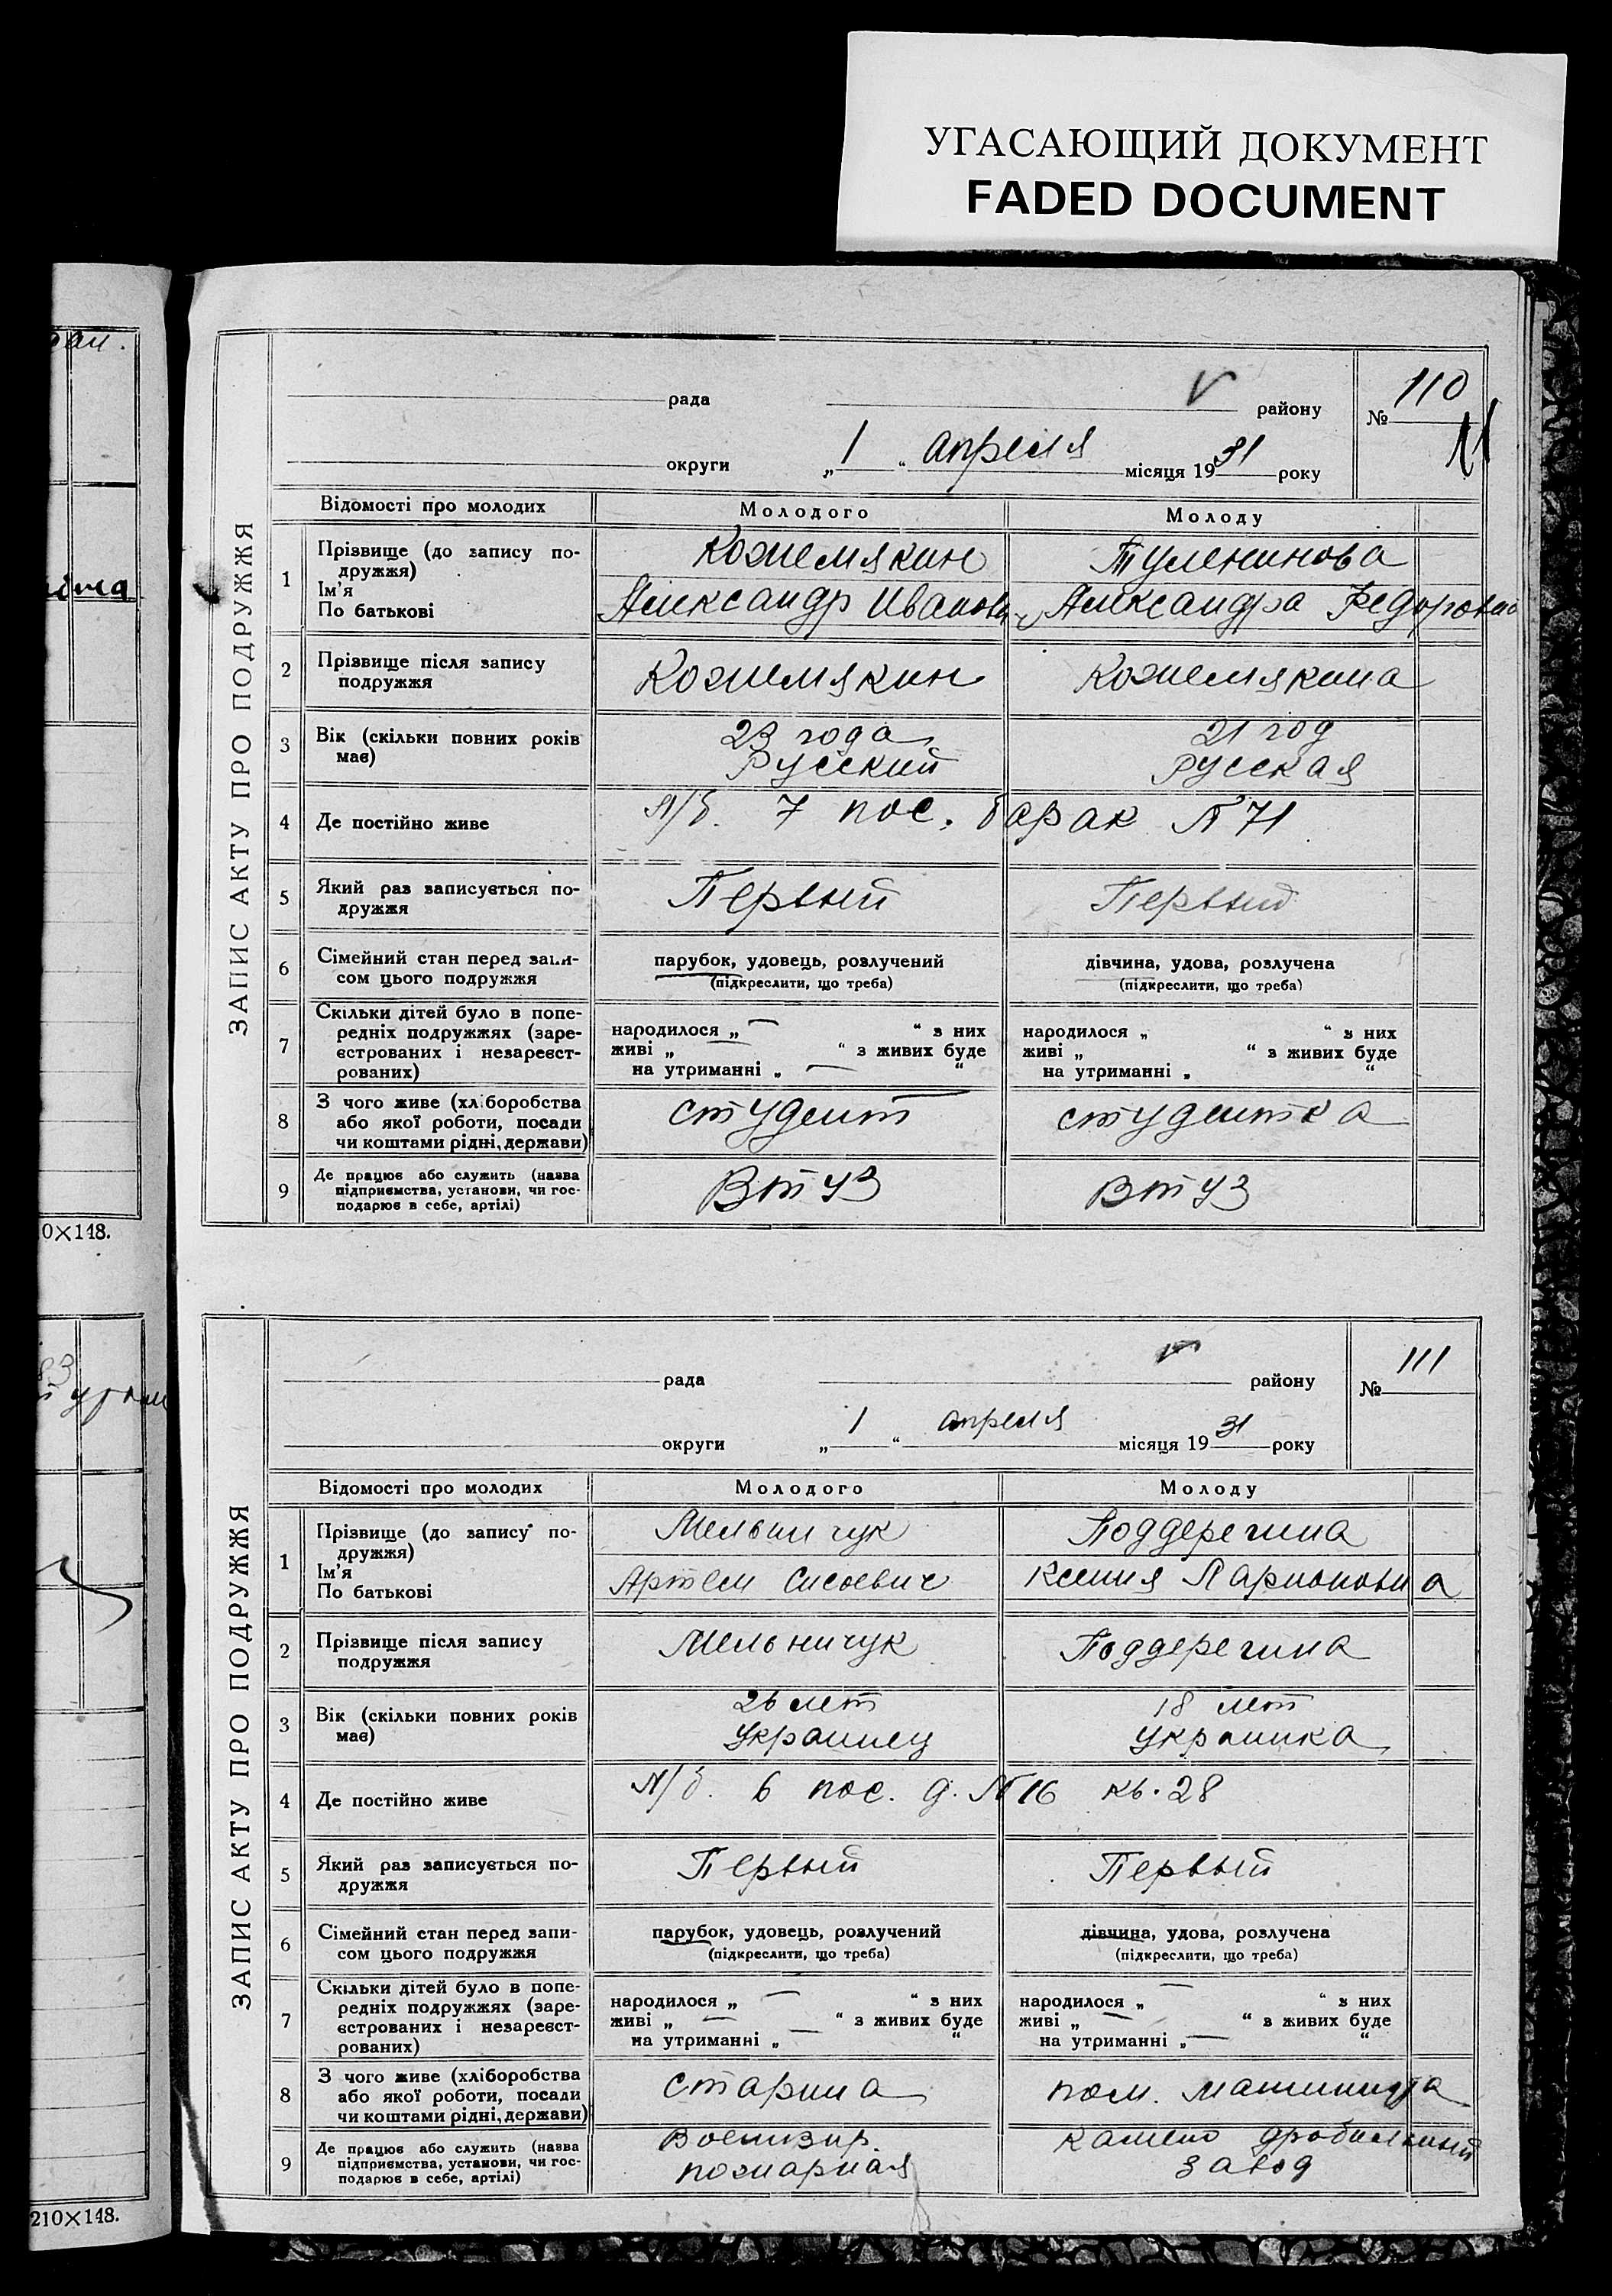 УГАСАЮЩИЙ ДОКУМЕНТ
FADED DOCUMENT
ЗАПИС АКТУ ПРО ПОДРУЖЖЯ
рада V району № 110
11
округи „1“ апреля місяця 1931 року
Відомості про молодих Молодого Молоду
1 Прізвище (до запису по-
дружжя)
Кожемякин Туленинова
Ім'я
По батькові
Александр Иванович Александра Федоровна
2 Прізвище після запису
подружжя
Кожемякин Кожемякина
3 Вік (скільки повних років
має)
23 года 21 год
Русский Русская
4 Де постійно живе Л/б. 7 пос. барак № 71
5 Який раз записується по-
дружжя
Первый Первый
6 Сімейний стан перед запи-
сом цього подружжя
парубок, удовець, розлучений дівчина, удова, розлучена
(підкреслити, що треба) (підкреслити, що треба)
7 Скільки дітей було в попе-
редніх подружжях (заре-
єстрованих і незареєст-
рованих)
народилося „ — “ з них народилося „ “ з них
живі „ “ з живих буде живі „ “ з живих буде
на утриманні „ — “ на утриманні „ “
8 З чого живе (хліборобства
або якої роботи, посади
чи коштами рідні, держави)
студент студентка
9 Де працює або служить (назва
підприємства, установи, чи гос-
подарює в себе, артілі)
Втуз Втуз
ЗАПИС АКТУ ПРО ПОДРУЖЖЯ
рада V району № 111
округи „1“ апреля місяця 1931 року
Відомості про молодих Молодого Молоду
1 Прізвище (до запису по-
дружжя)
Мельничук Поддерегина
Ім'я
По батькові
Артем Сисоевич Ксения Ларионовна
2 Прізвище після запису
подружжя
Мельничук Поддерегина
3 Вік (скільки повних років
має)
26 лет 18 лет
Украинец Украинка
4 Де постійно живе Л/б. 6 пос. д. № 16 кв. 28
5 Який раз записується по-
дружжя
Первый Первый
6 Сімейний стан перед запи-
сом цього подружжя
парубок, удовець, розлучений дівчина, удова, розлучена
(підкреслити, що треба) (підкреслити, що треба)
7 Скільки дітей було в попе-
редніх подружжях (заре-
єстрованих і незареєст-
рованих)
народилося „ — “ з них народилося „ — “ з них
живі „ — “ з живих буде живі „ — “ з живих буде
на утриманні „ — “ на утриманні „ — “
8 З чого живе (хліборобства
або якої роботи, посади
чи коштами рідні, держави)
старшина пом. машиниста
9 Де працює або служить (назва
підприємства, установи, чи гос-
подарює в себе, артілі)
Военизир. камено дробильный
пожарная завод
0×148.
210×148.